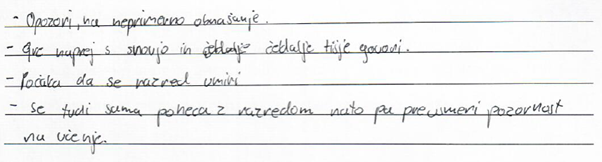 - Opozori, na neprimerno obnašanje.
- Gre naprej s snovjo in čedalje tišje govori.
- Počaka da se razred umiri
- se tudi sama poheca z razredom nato pa preusmeri pozornost
na učenje.